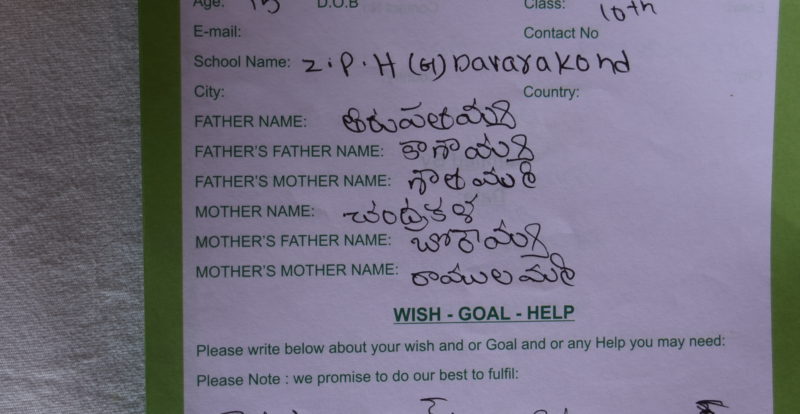 Age: 15 D.O.B Class: 10th
E-mail: Contact No
School Name: Z.P.H (G) Davarakond
City: Country:
FATHER NAME: తిరుపతయ్య
FATHER'S FATHER NAME:
FATHER'S MOTHER NAME:
MOTHER NAME: చంద్రకళ
MOTHER'S FATHER NAME:
MOTHER'S MOTHER NAME: రాములమ్మ
WISH - GOAL - HELP
Please write below about your wish and or Goal and or any Help you may need:
Please Note : we promise to do our best to fulfil: